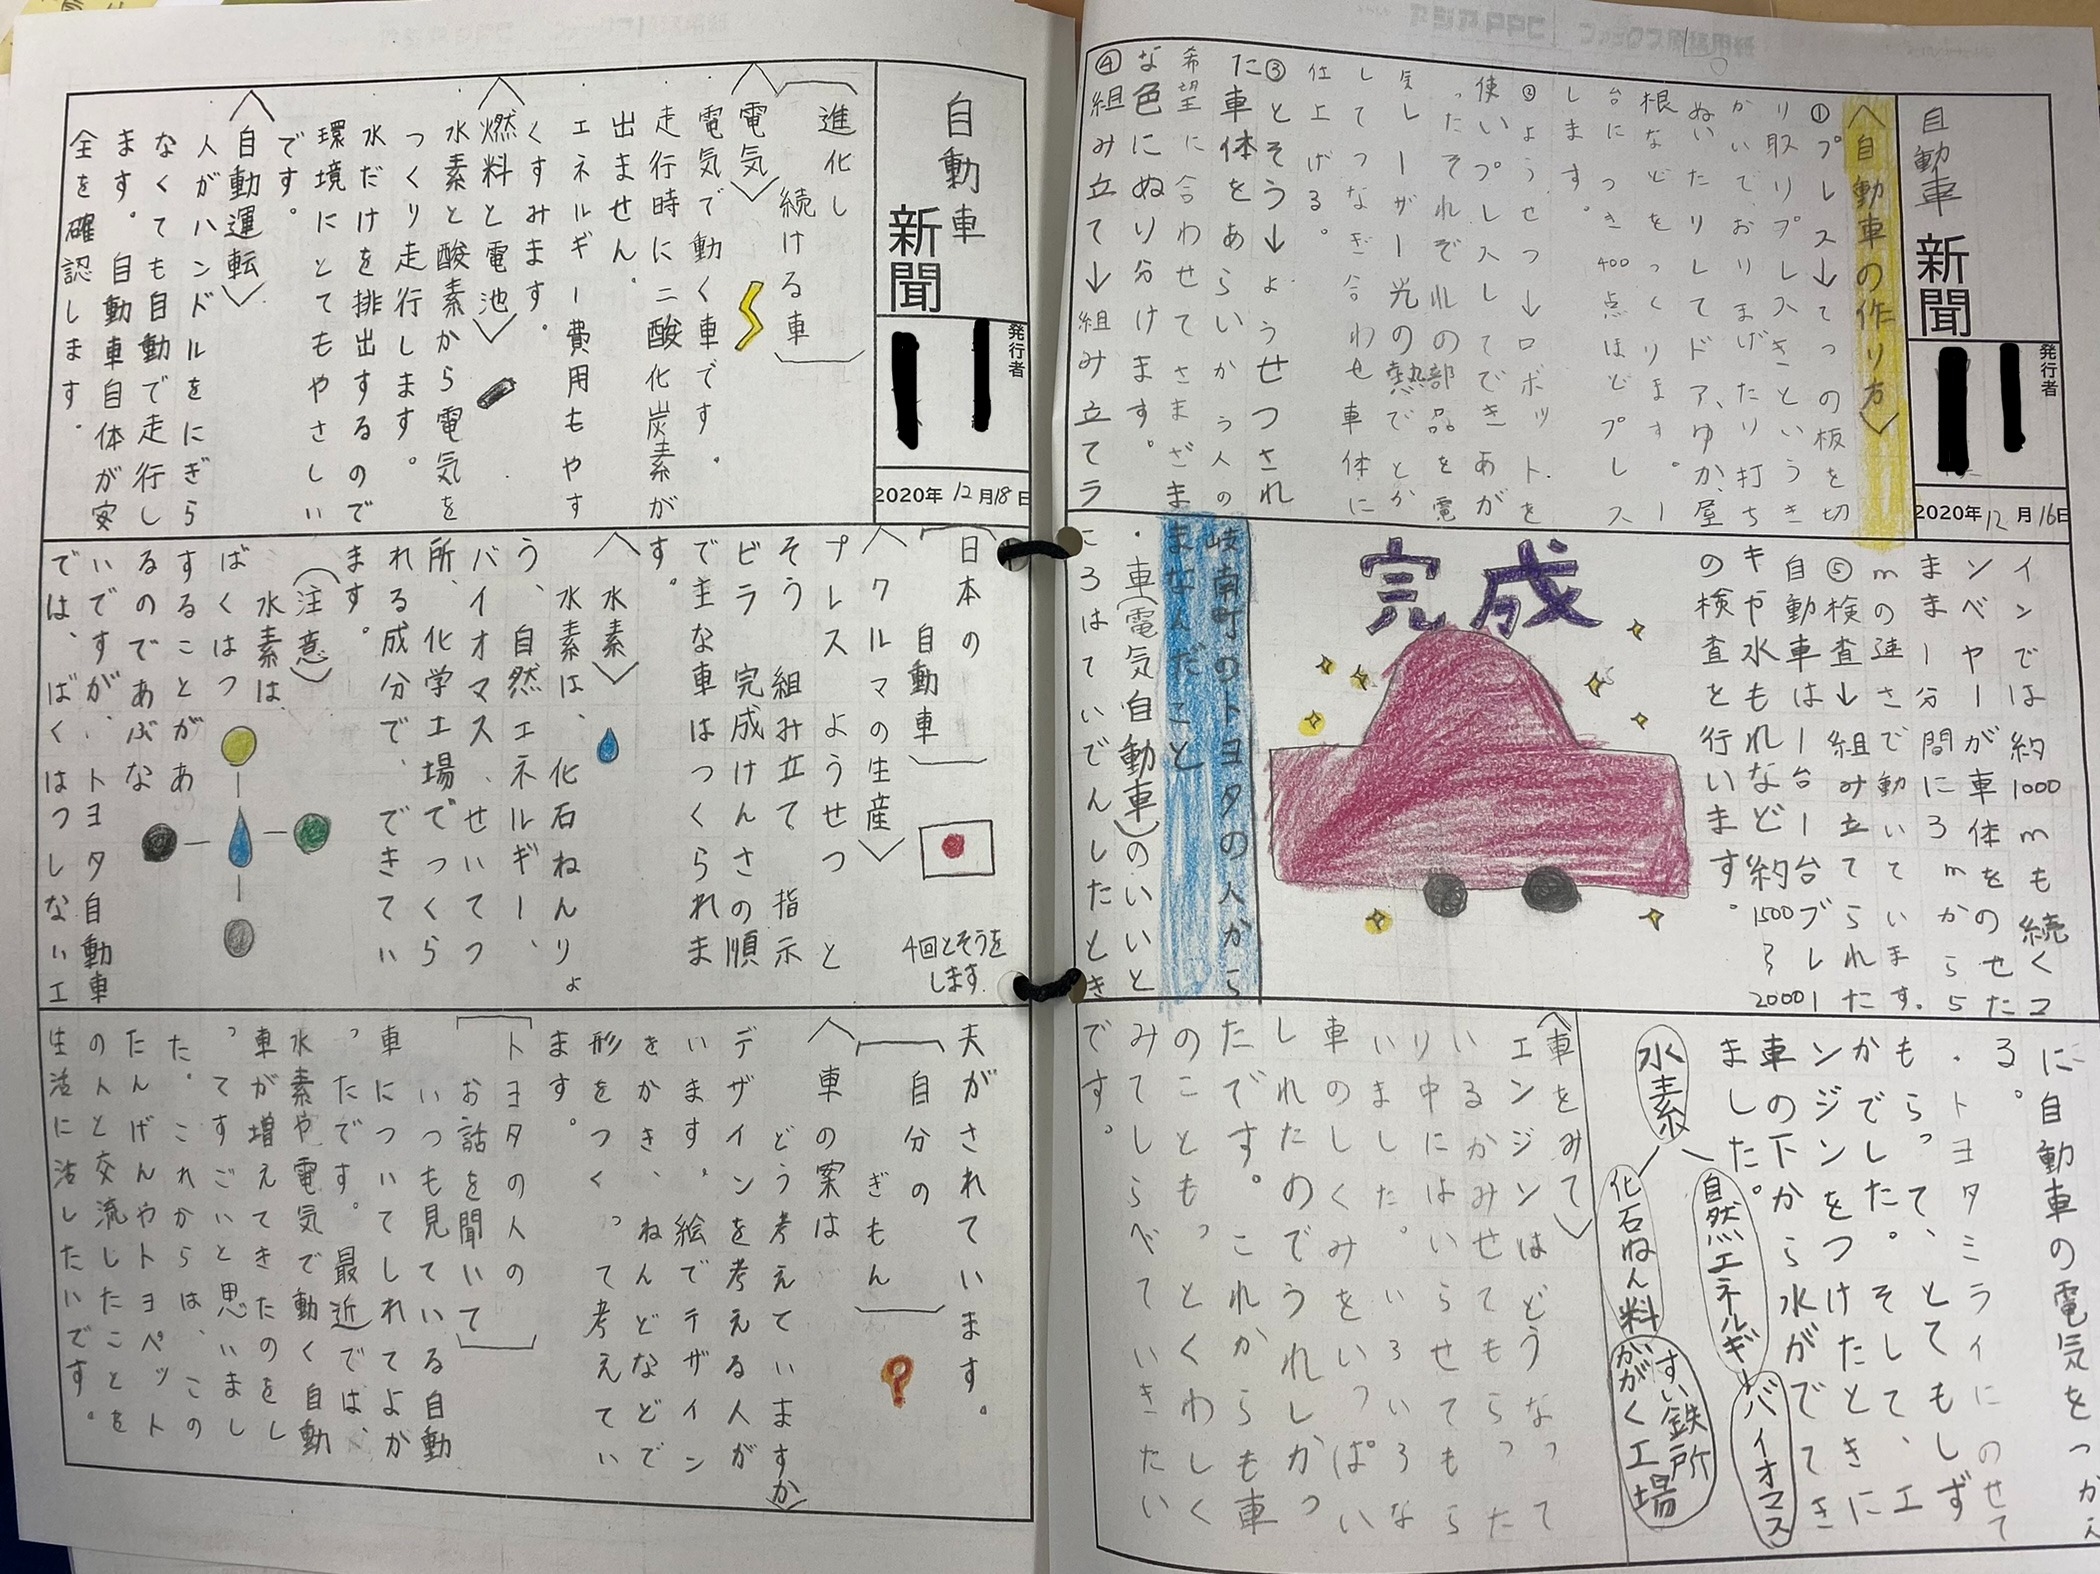 自動車
新聞
発行者
2020年12月16日
〈自動車の作り方〉
①プレス→てっの板を切
り取りプレスきというき
かいで、おりまげたり打ち
ぬいたりしてドア、ゆか、屋
根などをつくります。一
台につき400点ほどプレス
します。
②ようせつ→ロボットを
使いプレスしてできあが
ったそれぞれの部品を電
気レーザー光の熱でとか
してつなぎ合わせ車体に
仕上げる。
③とそう→ようせつされ
た車体をあらいかう人の
希望に合わせてさまざま
な色にぬり分けます。
④組み立て→組み立てラ
インでは約1000mも続くコ
ンベヤーが車体をのせた
まま1分間に3mから5
mの速さで動いています。
⑤検査→組み立てられた
自動車は一台一台ブレー
キや水もれなど約1500〜2000
の検査を行います。
完成
岐南町のトヨタの人から
まなんだこと
・車(電気自動車)のいいと
ころはていでんしたとき
に自動車の電気をつかえ
る。
・トヨタミライにのせて
もらって、とてもしず
かでした。そして、エ
ンジンをつけたときに
車の下から水がでてき
ました。
水素
自然エネルギー
化石ねん料
バイオマス
すい鉄所
かがく工場
〈車をみて〉
エンジンはどうなって
いるかみせてもらった
り中にはいらせてもら
いました。いろいろな
車のしくみをいっぱい
しれたのでうれしかっ
たです。これからも車
のこともっとくわしく
みてしらべていきたい
です。
自動車
新聞
発行者
2020年12月18日
進化し
続ける車
〈電気〉
電気で動く車です。
走行時に二酸化炭素が
出ません。
エネルギー費用もやす
くすみます。
〈燃料と電池〉
水素と酸素から電気を
つくり走行します。
水だけを排出するので
環境にとてもやさしい
です。
〈自動運転〉
人がハンドルをにぎら
なくても自動で走行し
ます。自動車自体が安
全を確認します。
日本の
自動車
4回とそうを
します
〈クルマの生産〉
プレス ようせつ と
そう 組み立て 指示
ビラ 完成けんさの順
で主な車はつくられま
す。
〈水素〉
水素は、化石ねんりょ
う、自然エネルギー、
バイオマス、せいてつ
所、化学工場でつくら
れる成分で、できてい
ます。
(注意)
水素は
ばくはつ
することがあ
るのであぶな
いですが、トヨタ自動車
では、ばくはつしない工
夫がされています。
自分の
ぎもん
〈車の案は
どう考えていますか〉
デザインを考える人が
います。絵でデザイン
をかき、ねんどなどで
形をつくって考えてい
ます。
トヨタの人の
お話を聞いて
いつも見ている自動
車についてしれてよか
ったです。最近では、
水素や電気で動く自動
車が増えてきたのをし
ってすごいと思いまし
た。これからは、この
たんげんやトヨペット
の人と交流したことを
生活に活したいです。